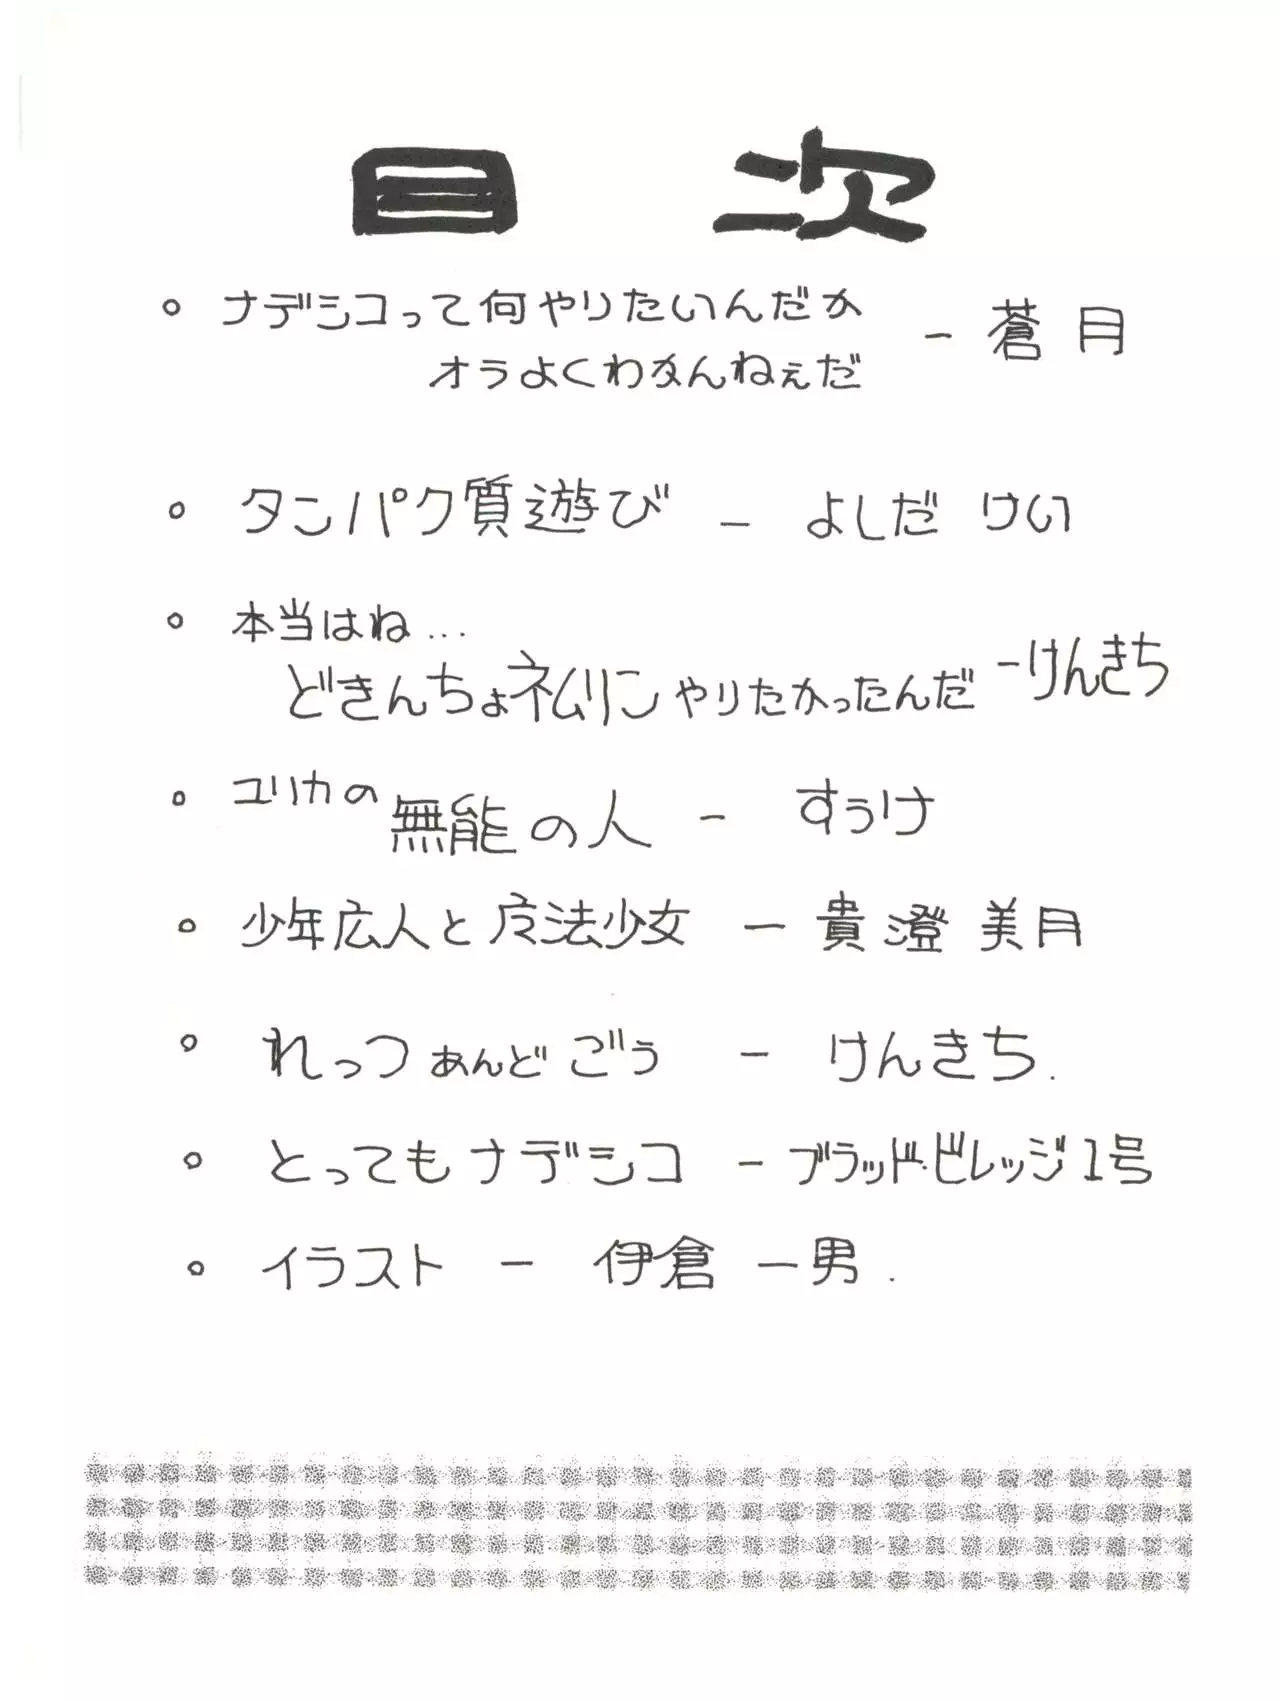 目次
。ナデシコって何やりたいんだか
オラよくわかんねぇだ - 蒼月
。タンパク質遊び - よしだ けい
。本当はね…
どきんちょネムリンやりたかったんだ - けんきち
。ユリカの無能の人 - すぅけ
。少年広人と魔法少女 - 貴澄 美月
。れっつ あんど ごう - けんきち.
。とってもナデシコ - ブラッド・ビレッジ1号
。イラスト - 伊倉 一男.